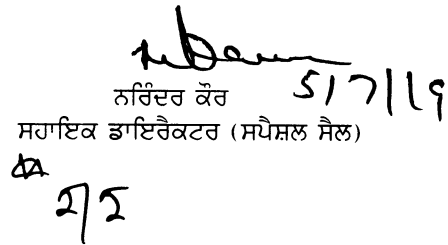 ਨਰਿੰਦਰ ਕੌਰ 5/7/19
ਸਹਾਇਕ ਡਾਇਰੈਕਟਰ (ਸਪੈਸ਼ਲ ਸੈਲ)
2/2